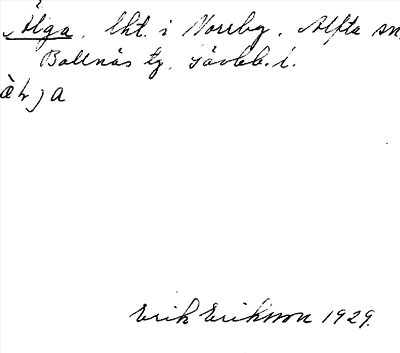 Älga, lht. i Norrby, Alfta sn,
Bollnäs tg. Gävleb. l.
Erik Eriksson 1929.